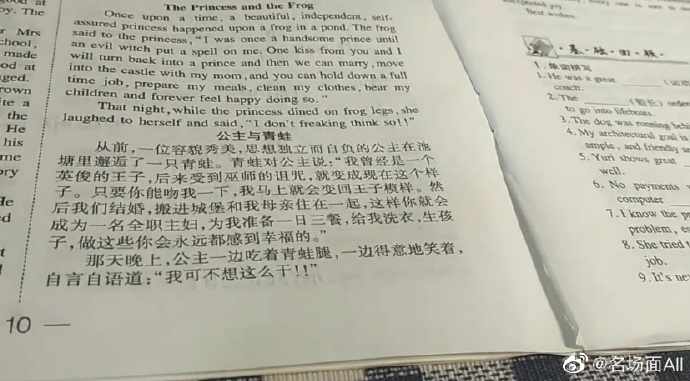 The Princess and the Frog
Once upon a time, a beautiful, independent, self-
assured princess happened upon a frog in a pond. The frog
said to the princess, "I was once a handsome prince until
an evil witch put a spell on me. One kiss from you and I
will turn back into a prince and then we can marry, move
into the castle with my mom, and you can hold down a full
time job, prepare my meals, clean my clothes, bear my
children and forever feel happy doing so."
That night, while the princess dined on frog legs, she
laughed to herself and said, "I don't freaking think so!!"
公主与青蛙
从前,一位容貌秀美,思想独立而自负的公主在池
塘里邂逅了一只青蛙。青蛙对公主说:“我曾经是一个
英俊的王子,后来受到巫师的诅咒,就变成现在这个样
子。只要你能吻我一下,我马上就会变回王子模样。然
后我们结婚,搬进城堡和我母亲住在一起,这样你就会
成为一名全职主妇,为我准备一日三餐,给我洗衣,生孩
子,做这些你会永远都感到幸福的。”
那天晚上,公主一边吃着青蛙腿,一边得意地笑着,
自言自语道:“我可不想这么干!!”
10 —
good at
joy. The
r Mrs
chool,
made
od at
ged.
rown
ite a
the
He
his
me
ory
He
ed
t
Best wishes.
基础回顾
1. He was a great
coach.
2. The
to go into lifeboats.
3. The dog was running behi
4. My architectural goal is
ample, and friendly
5. Yuri shows great
well.
6. No payments
computer
7. I know the pr
problem, es
8. She tried t
job.
9. It's ne
@名场面AII